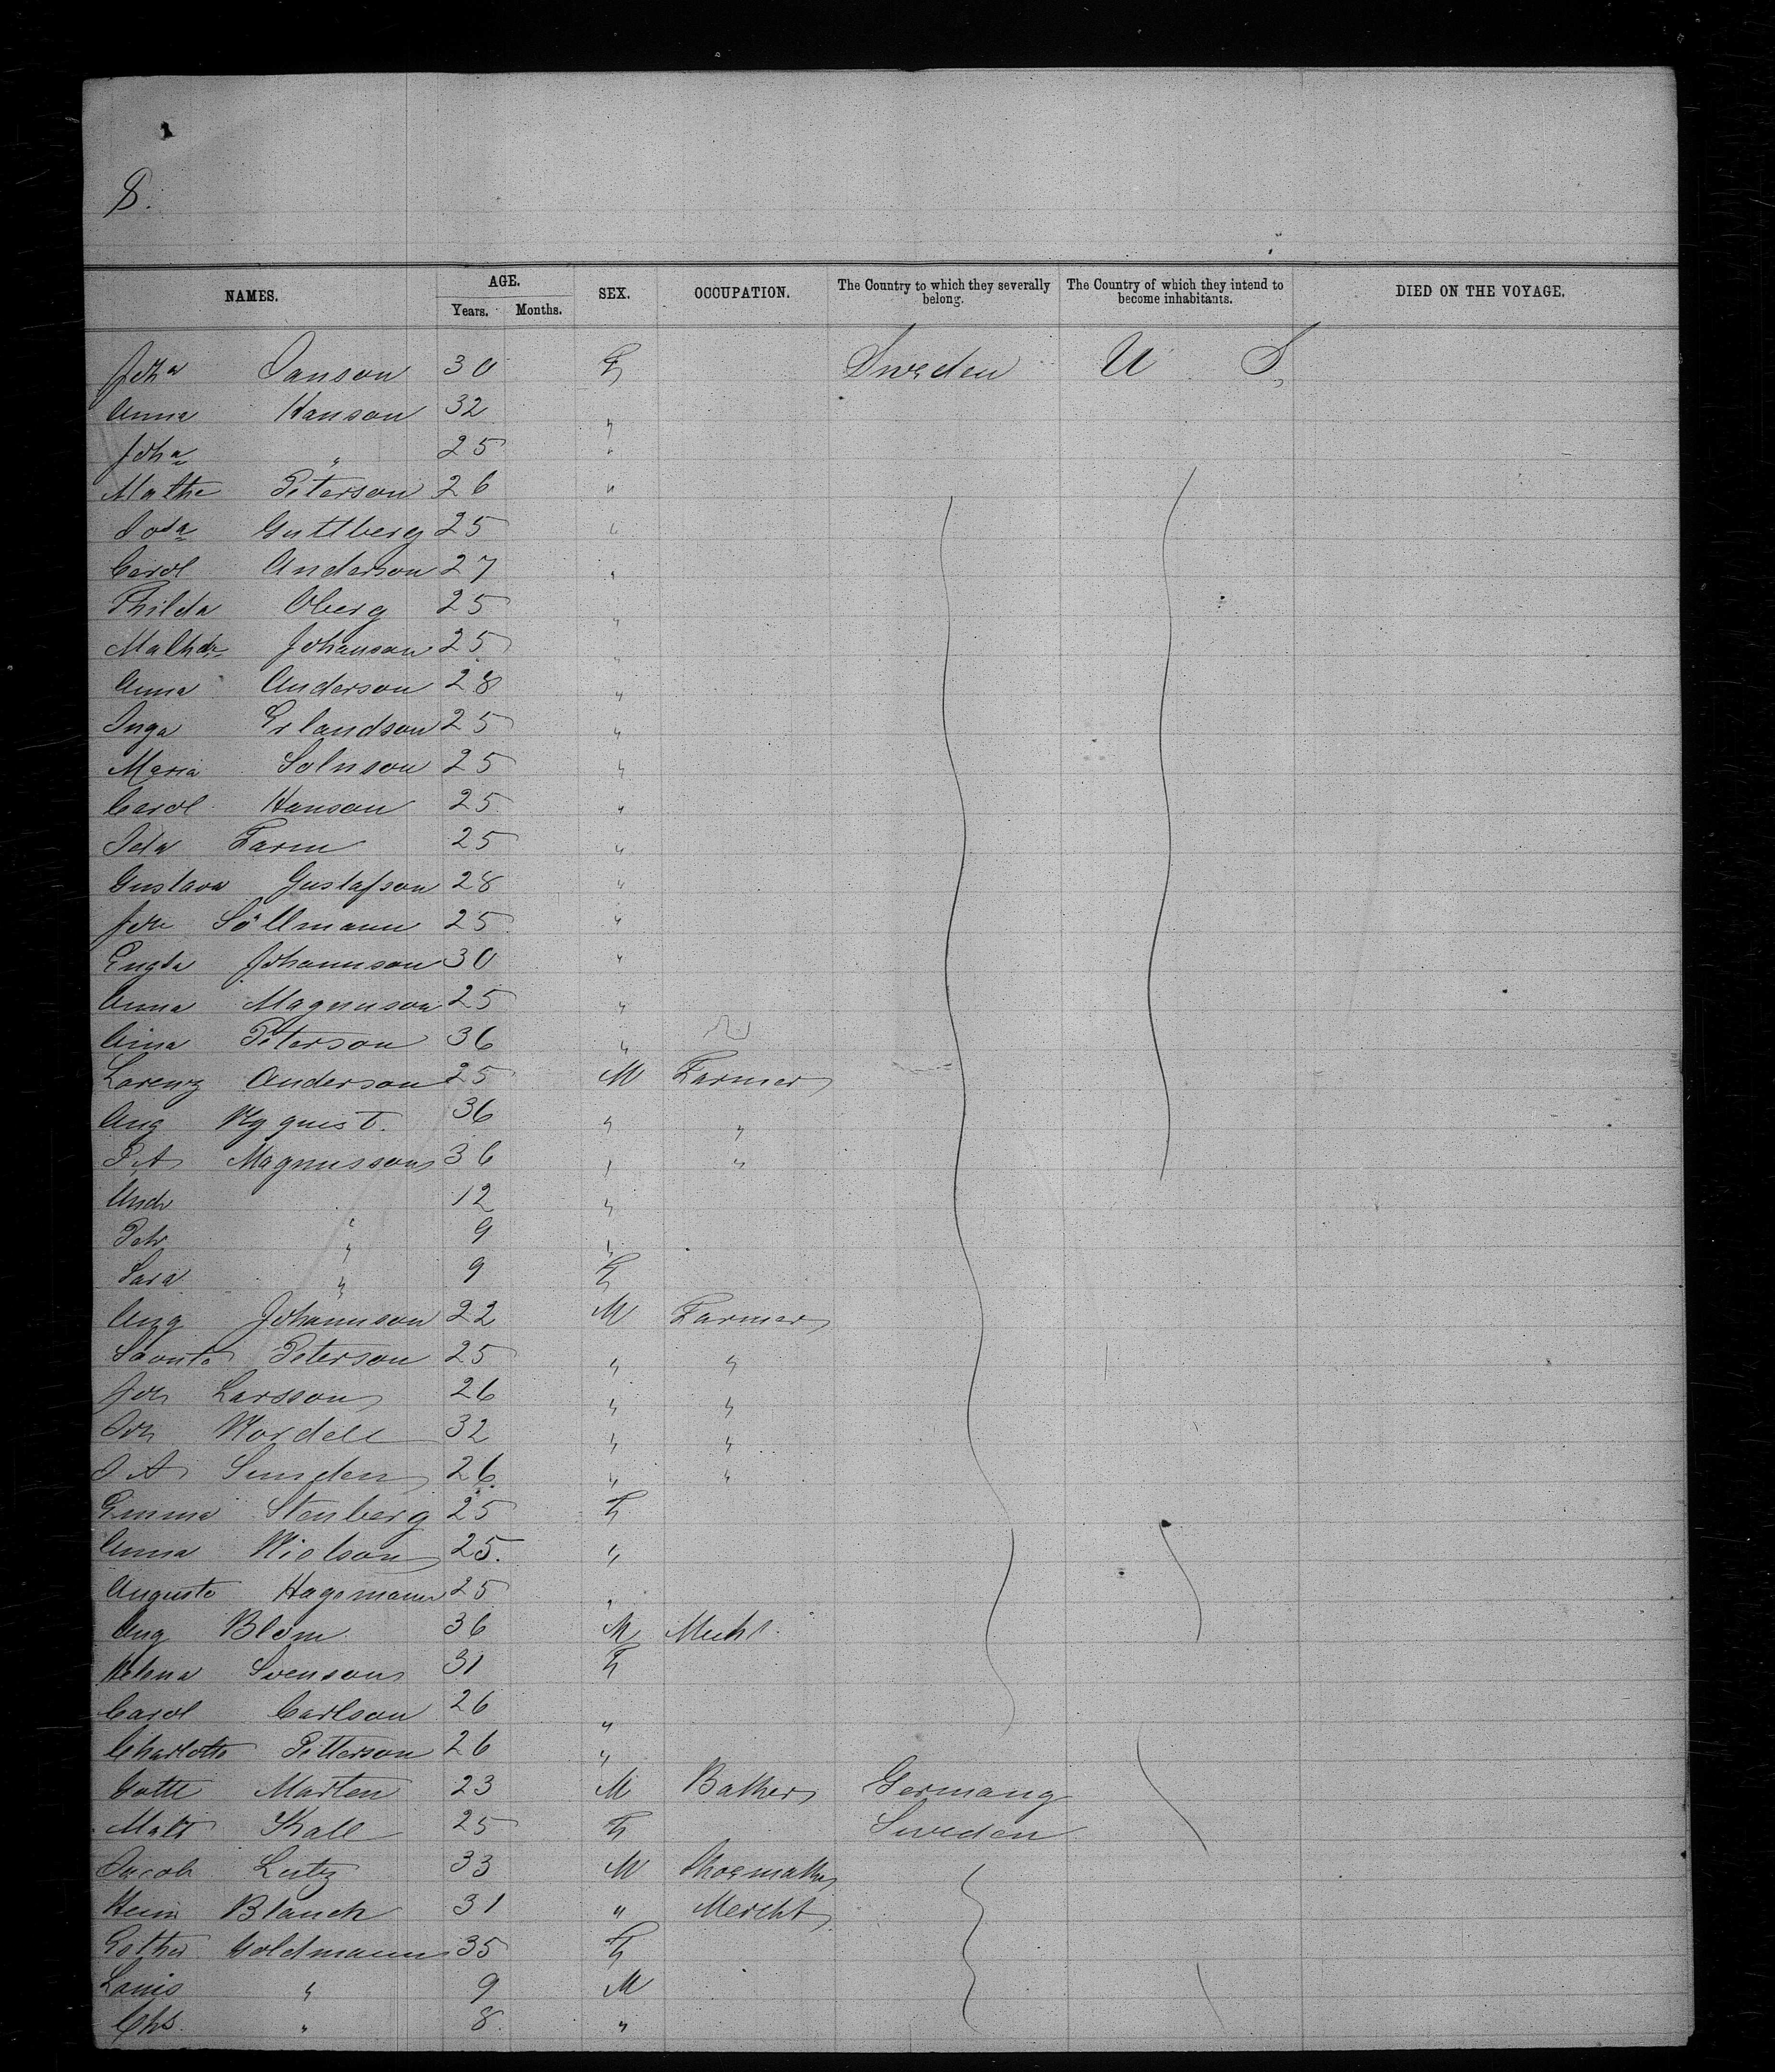 8.
NAMES. AGE. Years. Months. SEX. OCCUPATION. The Country to which they severally belong. The Country of which they intend to become inhabitants. DIED ON THE VOYAGE.
Joha Janson 30 F Sweden U S
Anna Hanson 32 "
Joha " 25 "
Mathe Peterson 26 "
Guttberg 25 "
Carol Anderson 27 "
Thilda Oberg 25 "
Johanson 25 "
Anna Anderson 28 "
Inga Erlandson 25 "
Maria 25 "
Carol Hanson 25 "
Ida Farm 25 "
Gustava Gustafson 28 "
Joh Söllmann 25 "
Engla Johannson 30 "
Anna Magnuson 25 "
Peterson 36 "
Lorenz Anderson 25 M Farmer
Aug Nyquist. 36 " "
P A Magnusson 36 " "
Andr " 12 "
Petr " 9 "
Sara " 9 F
Aug Johannson 22 M Farmer
Peterson 25 " "
Joh Larsson 26 " "
Joh Nordell 32 " "
J A Sunden 26 " "
Emma Stenberg 25 F
Anna Nielson 25. "
Auguste Hagemann 25 "
Aug Blom 36 M
Helena Svenson 31 F
Carol Carlson 26 "
Charlotte Petterson 26 "
Marten 23 M Baker Germany
Kall 25 F Sweden
Jacob Lutz 33 M Shoemaker
Blanck 31 " Mercht
Esther Goldmann 35 F
Louis " 9 M
Chs. " 8 "